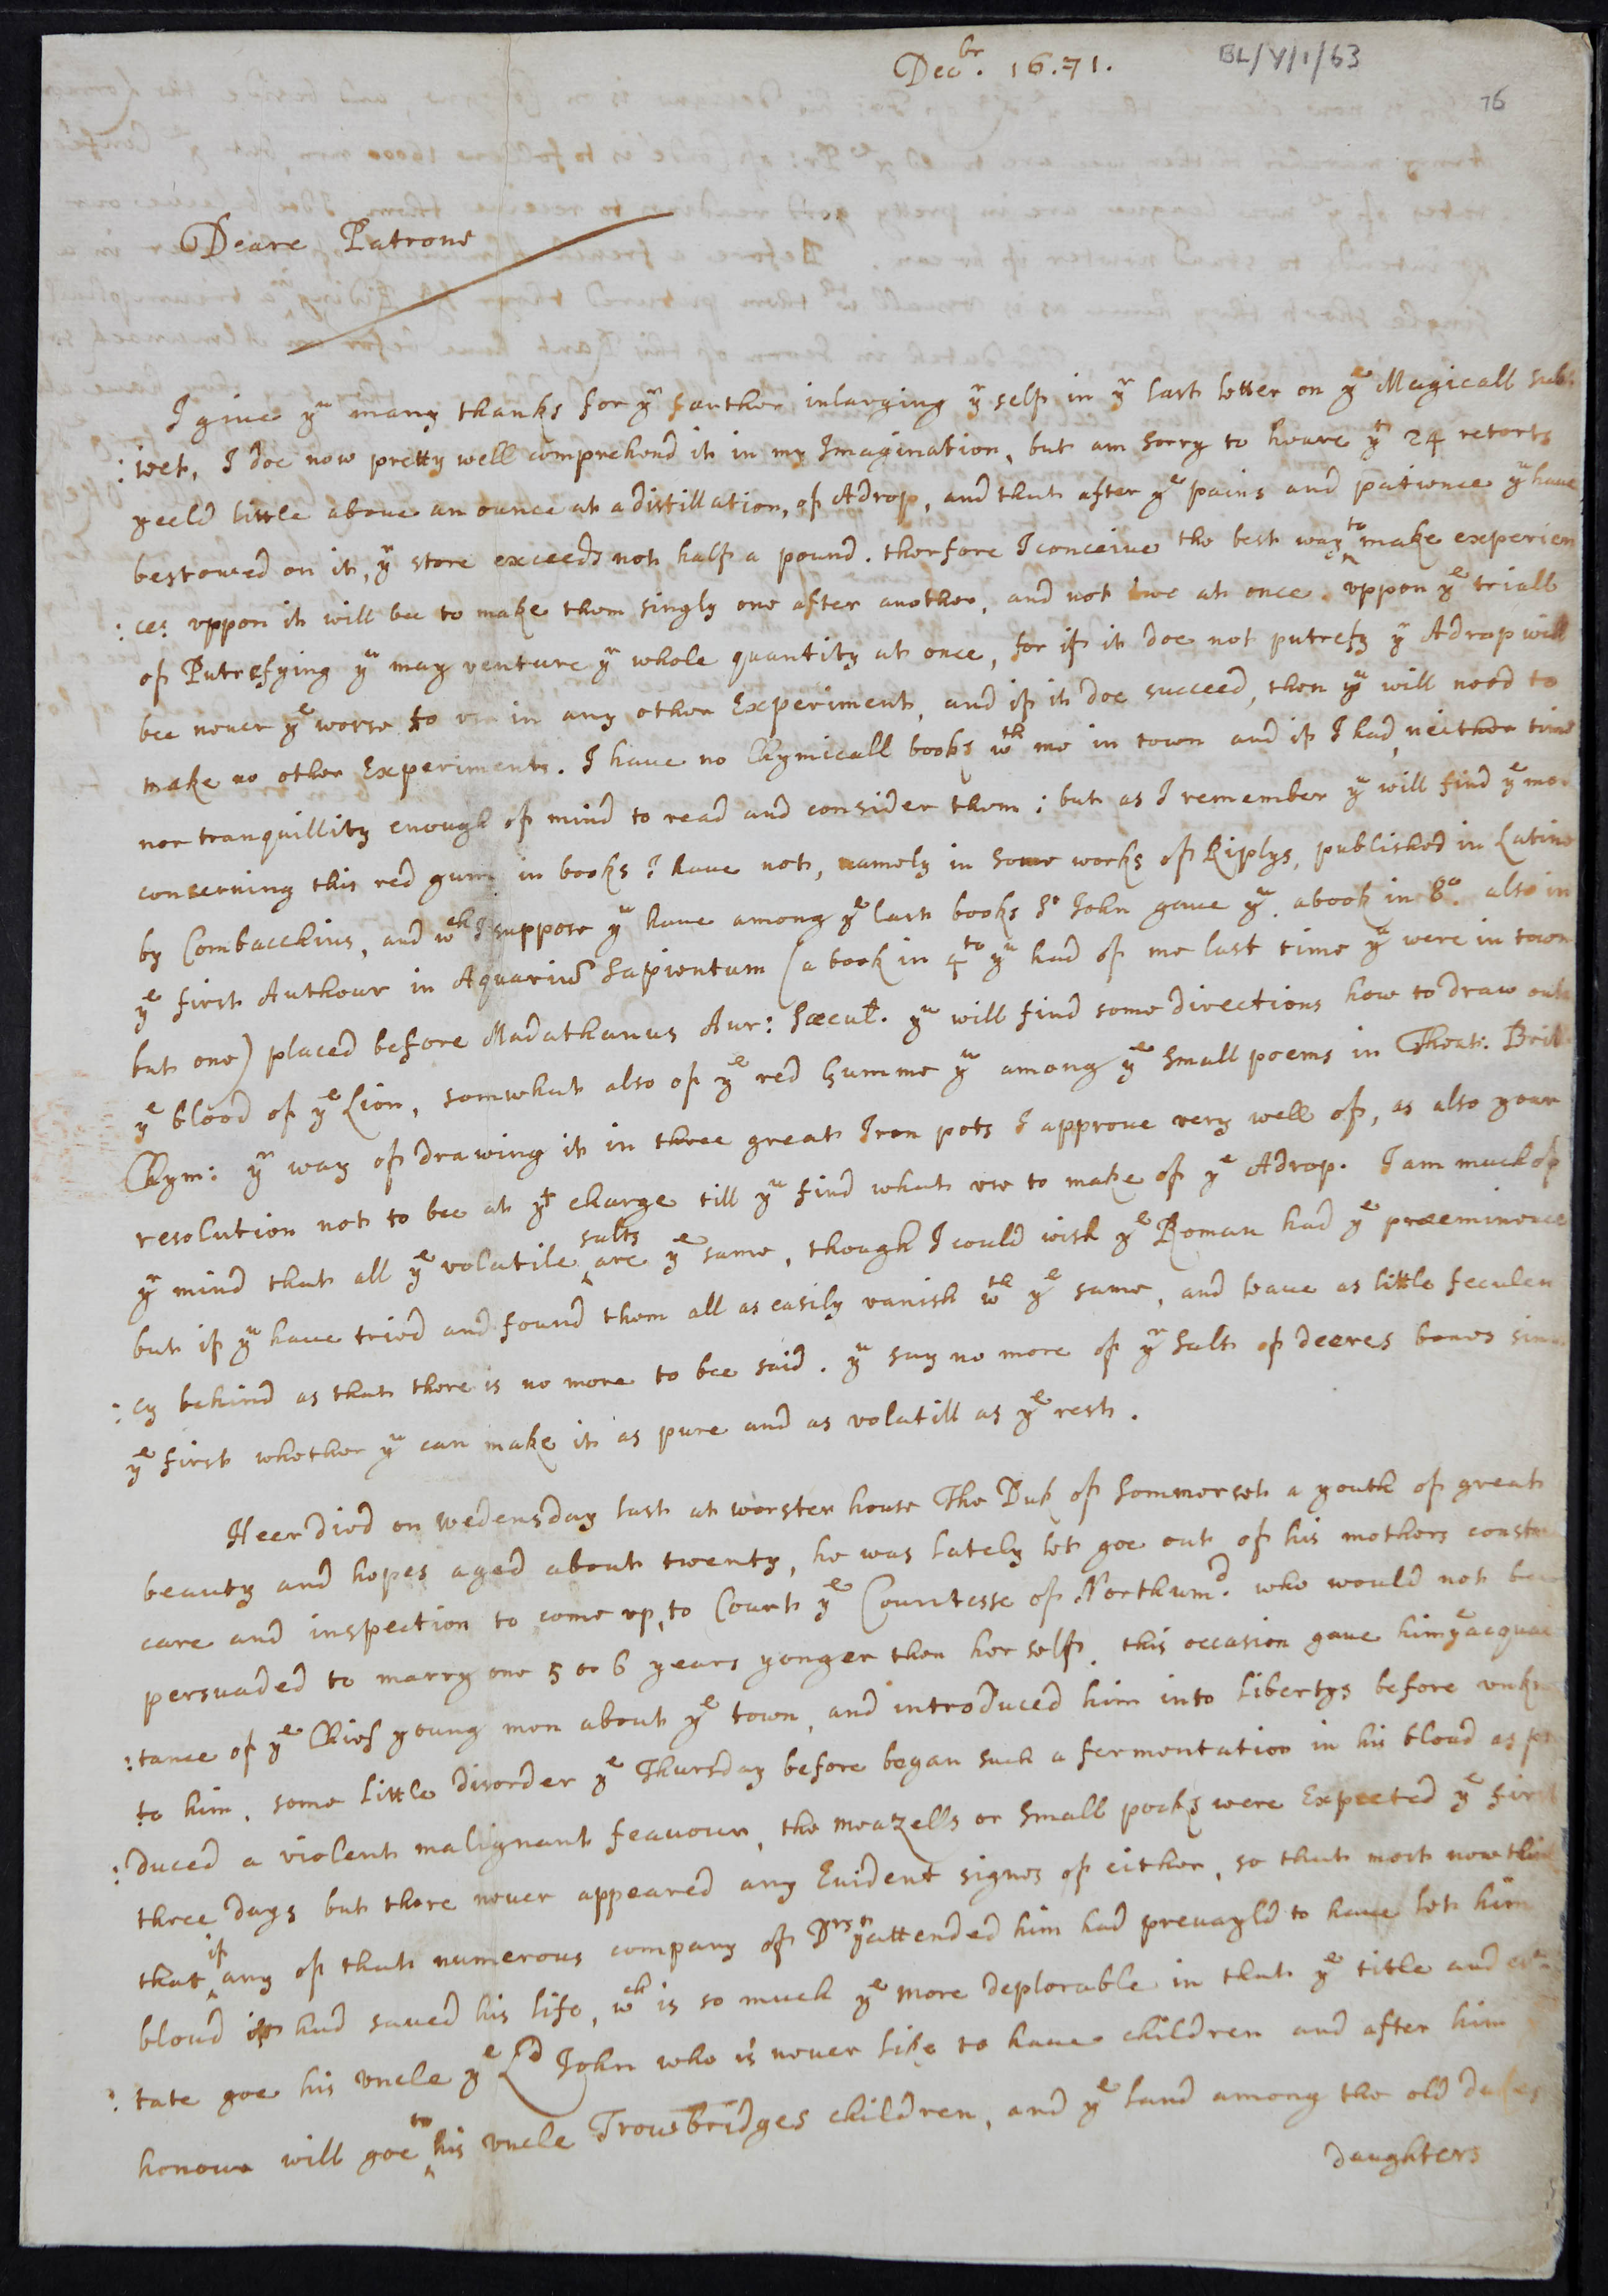 Decbr. 16.71.
BL/Y/1/63
76
Deare Patrone
I giue yu many thanks for yr farther inlarging yr self in yr last letter on ye Magicall sub:
:iect, I doe now pretty well comprehend it in my Imagination, but am sorry to heare yt 24 retorts
yeeld little aboue an ounce at a distillation, of Adrop, and that after ye pains and patience yu haue
bestowed on it, yr store exceeds not half a pound. therfore I conceiue the best way to make experien
:ces vppon it will bee to make them singly one after another, and not two at once. vppon ye triall
of Putrefying yu may venture yr whole quantity at once, for if it doe not putrefy yr Adrop will
bee neuer ye worse to vse in any other Experiment, and if it doe succeed, then yu will need to
make no other Experiments. I haue no Chymicall books wth me in town and if I had, neither time
nor tranquillity enough of mind to read and consider them; but as I remember yu will find ye most
conserning this red gum in books I haue not, namely in some works of Riplys, published in Latine
by Combacchius, and wch I suppose yu haue among ye last books Sr John gaue yu. a book in 8o. also in
ye first Authour in Aquariũ Sapientum (a book in 4to yu had of me last time yu were in town
but one) placed before Madathanus Aur: Sæcul. yu will find some directions how to draw out
ye blood of ye Lion, somwhat also of ye red Gumme yu among ye small poems in Theat: Brit
Chym: yr way of drawing it in three great Iron pots I approue very well of, as also your
resolution not to bee at yt charge till yu find what vse to make of ye Adrop. I am much of
yr mind that all ye volatile salts are ye same, though I could wish ye Roman had ye præeminence
but if yu haue tried and found them all as easily vanish wth ye same, and leaue as little feculen
:cy behind as that there is no more to bee said. yu say no more of yr Salt of deeres bones since
ye first whether yu can make it as pure and as volatill as ye rest.
Heer died on wedensday last at worster house The Duk of Sommerset a youth of great
beauty and hopes aged about twenty, he was lately let goe out of his mothers constant
care and inspection to come vp, to Court ye Countesse of Northumd. who would not bee
persuaded to marry one 5 or 6 years yonger then her self. this occasion gaue him ye acquain
:tance of ye Chief young men about ye town, and introduced him into libertys before vnknown
to him, some little disorder ye Thursday before began such a fermentation in his bloud as pro
:duced a violent malignant feauour, the meazells or small pocks were Expected ye first
three days but there neuer appeared any Euident signes of either, so that most now think
that if any of that numerous company of Drs yt attended him had preuayld to haue let him
bloud it had saued his life, wch is so much ye more deplorable in that ye title and es
:tate goe his vncle ye Ld John who is neuer like to haue children and after him
honour will goe to his vncle Trowbridges children, and ye land among the old dukes
daughters